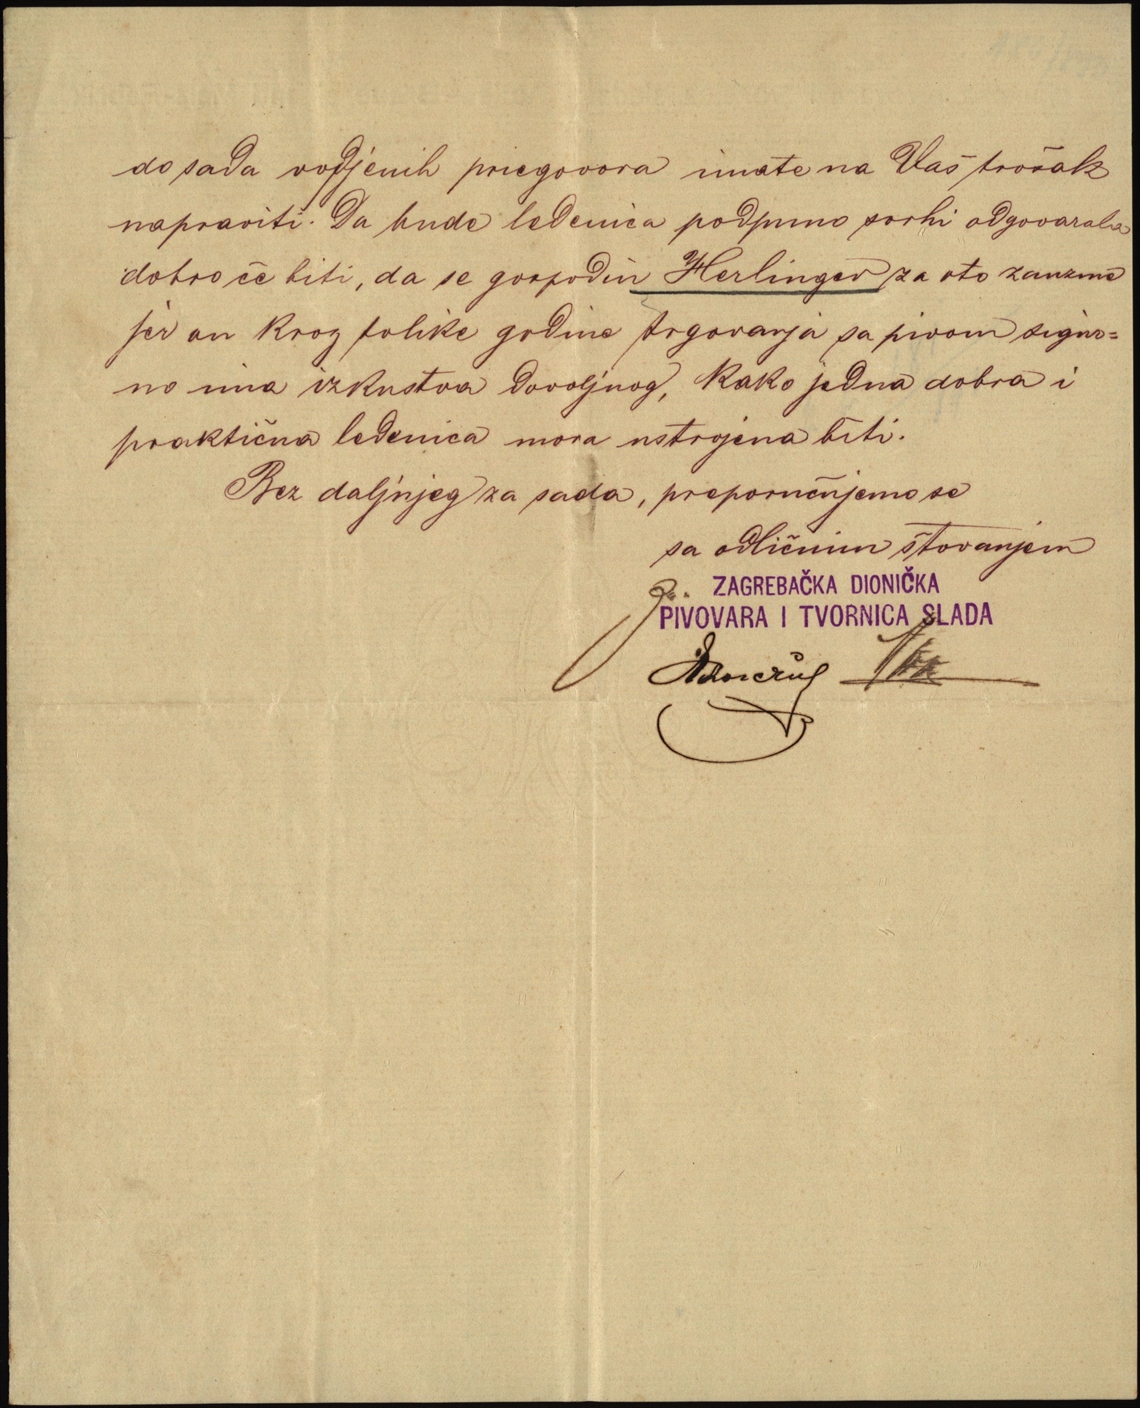 do sada vodjenih priegovora imate na Vaš trošak
napraviti. Da bude ledenica podpuno svrhi odgovarala
dobro če biti, da se gospodin Herlinger za oto zauzme
jer on kroz tolike godine trgovanja sa pivom sigur=
no ima izkustva dovoljnog, kako jedna dobra i
praktična ledenica mora ustrojena biti.
Bez daljnjeg za sada, preporučujemo se
sa odličnim štovanjem
ZAGREBAČKA DIONIČKA
PIVOVARA I TVORNICA SLADA